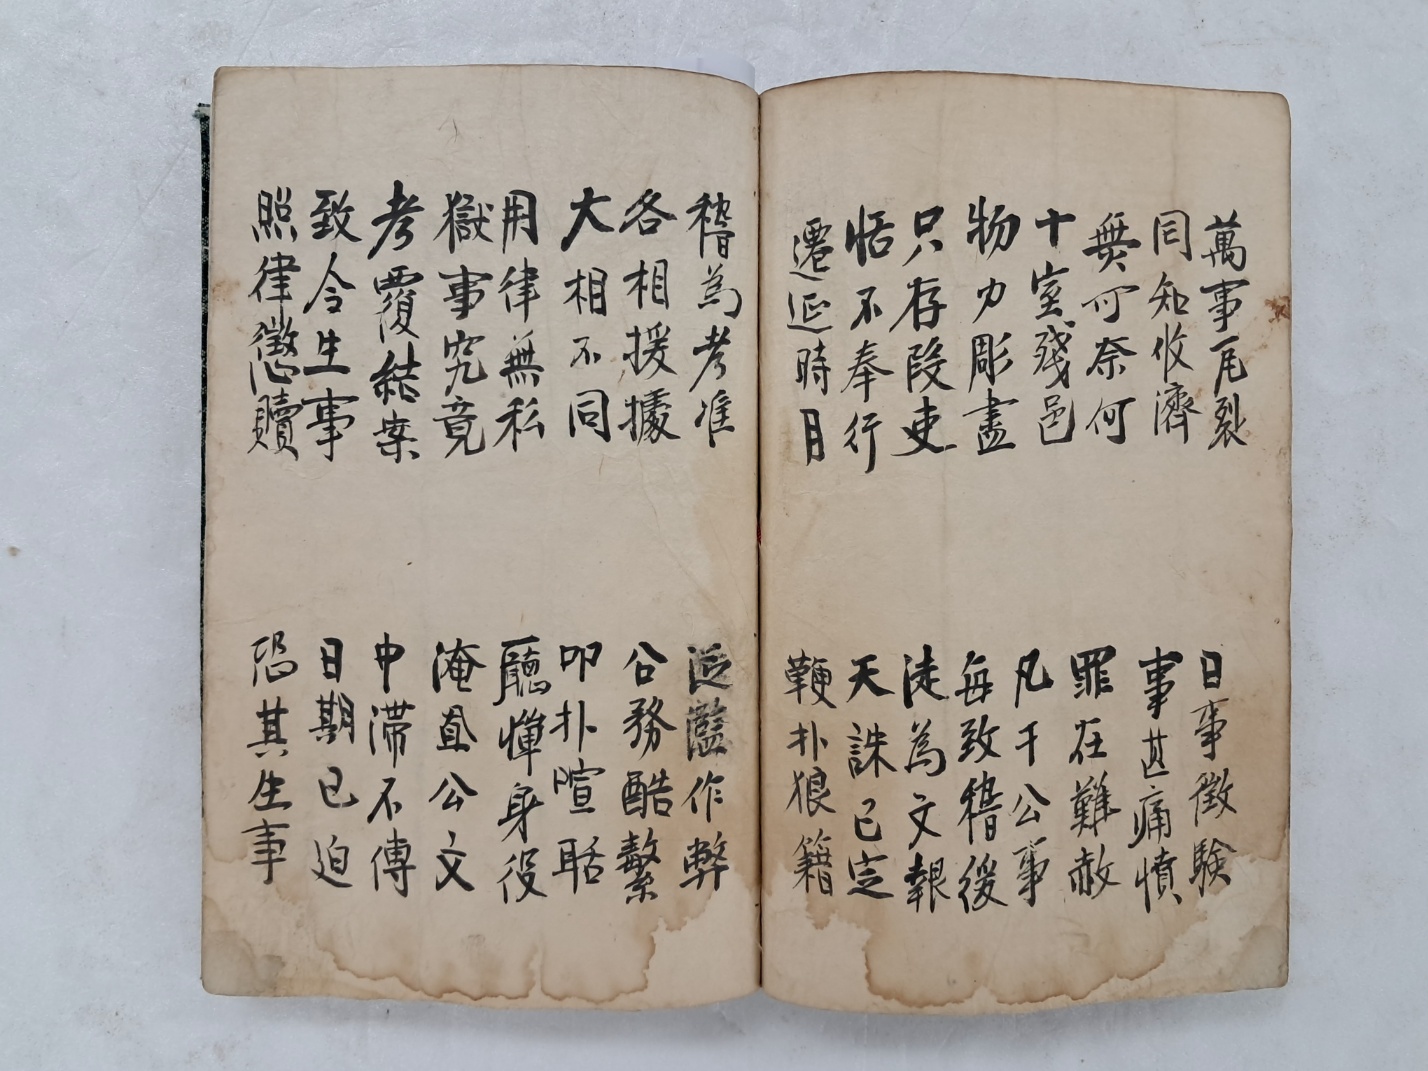 萬事瓦裂
同知收濟
無可奈何
十室殘邑
物力彫盡
只存段吏
恬不奉行
遷延時月
日事徵驗
事甚痛憤
罪在難赦
凡千公事
每致稽後
徒為文報
天誅已定
鞭扑狼籍
稽為考准
各相援據
大相不同
用律無私
獄事究竟
考覆結案
致令生事
照律徵贖
泛濫作弊
公務酷繫
叩扑喧聒
廳憚身役
淹直公文
申滯不傳
日期已迫
恐其生事